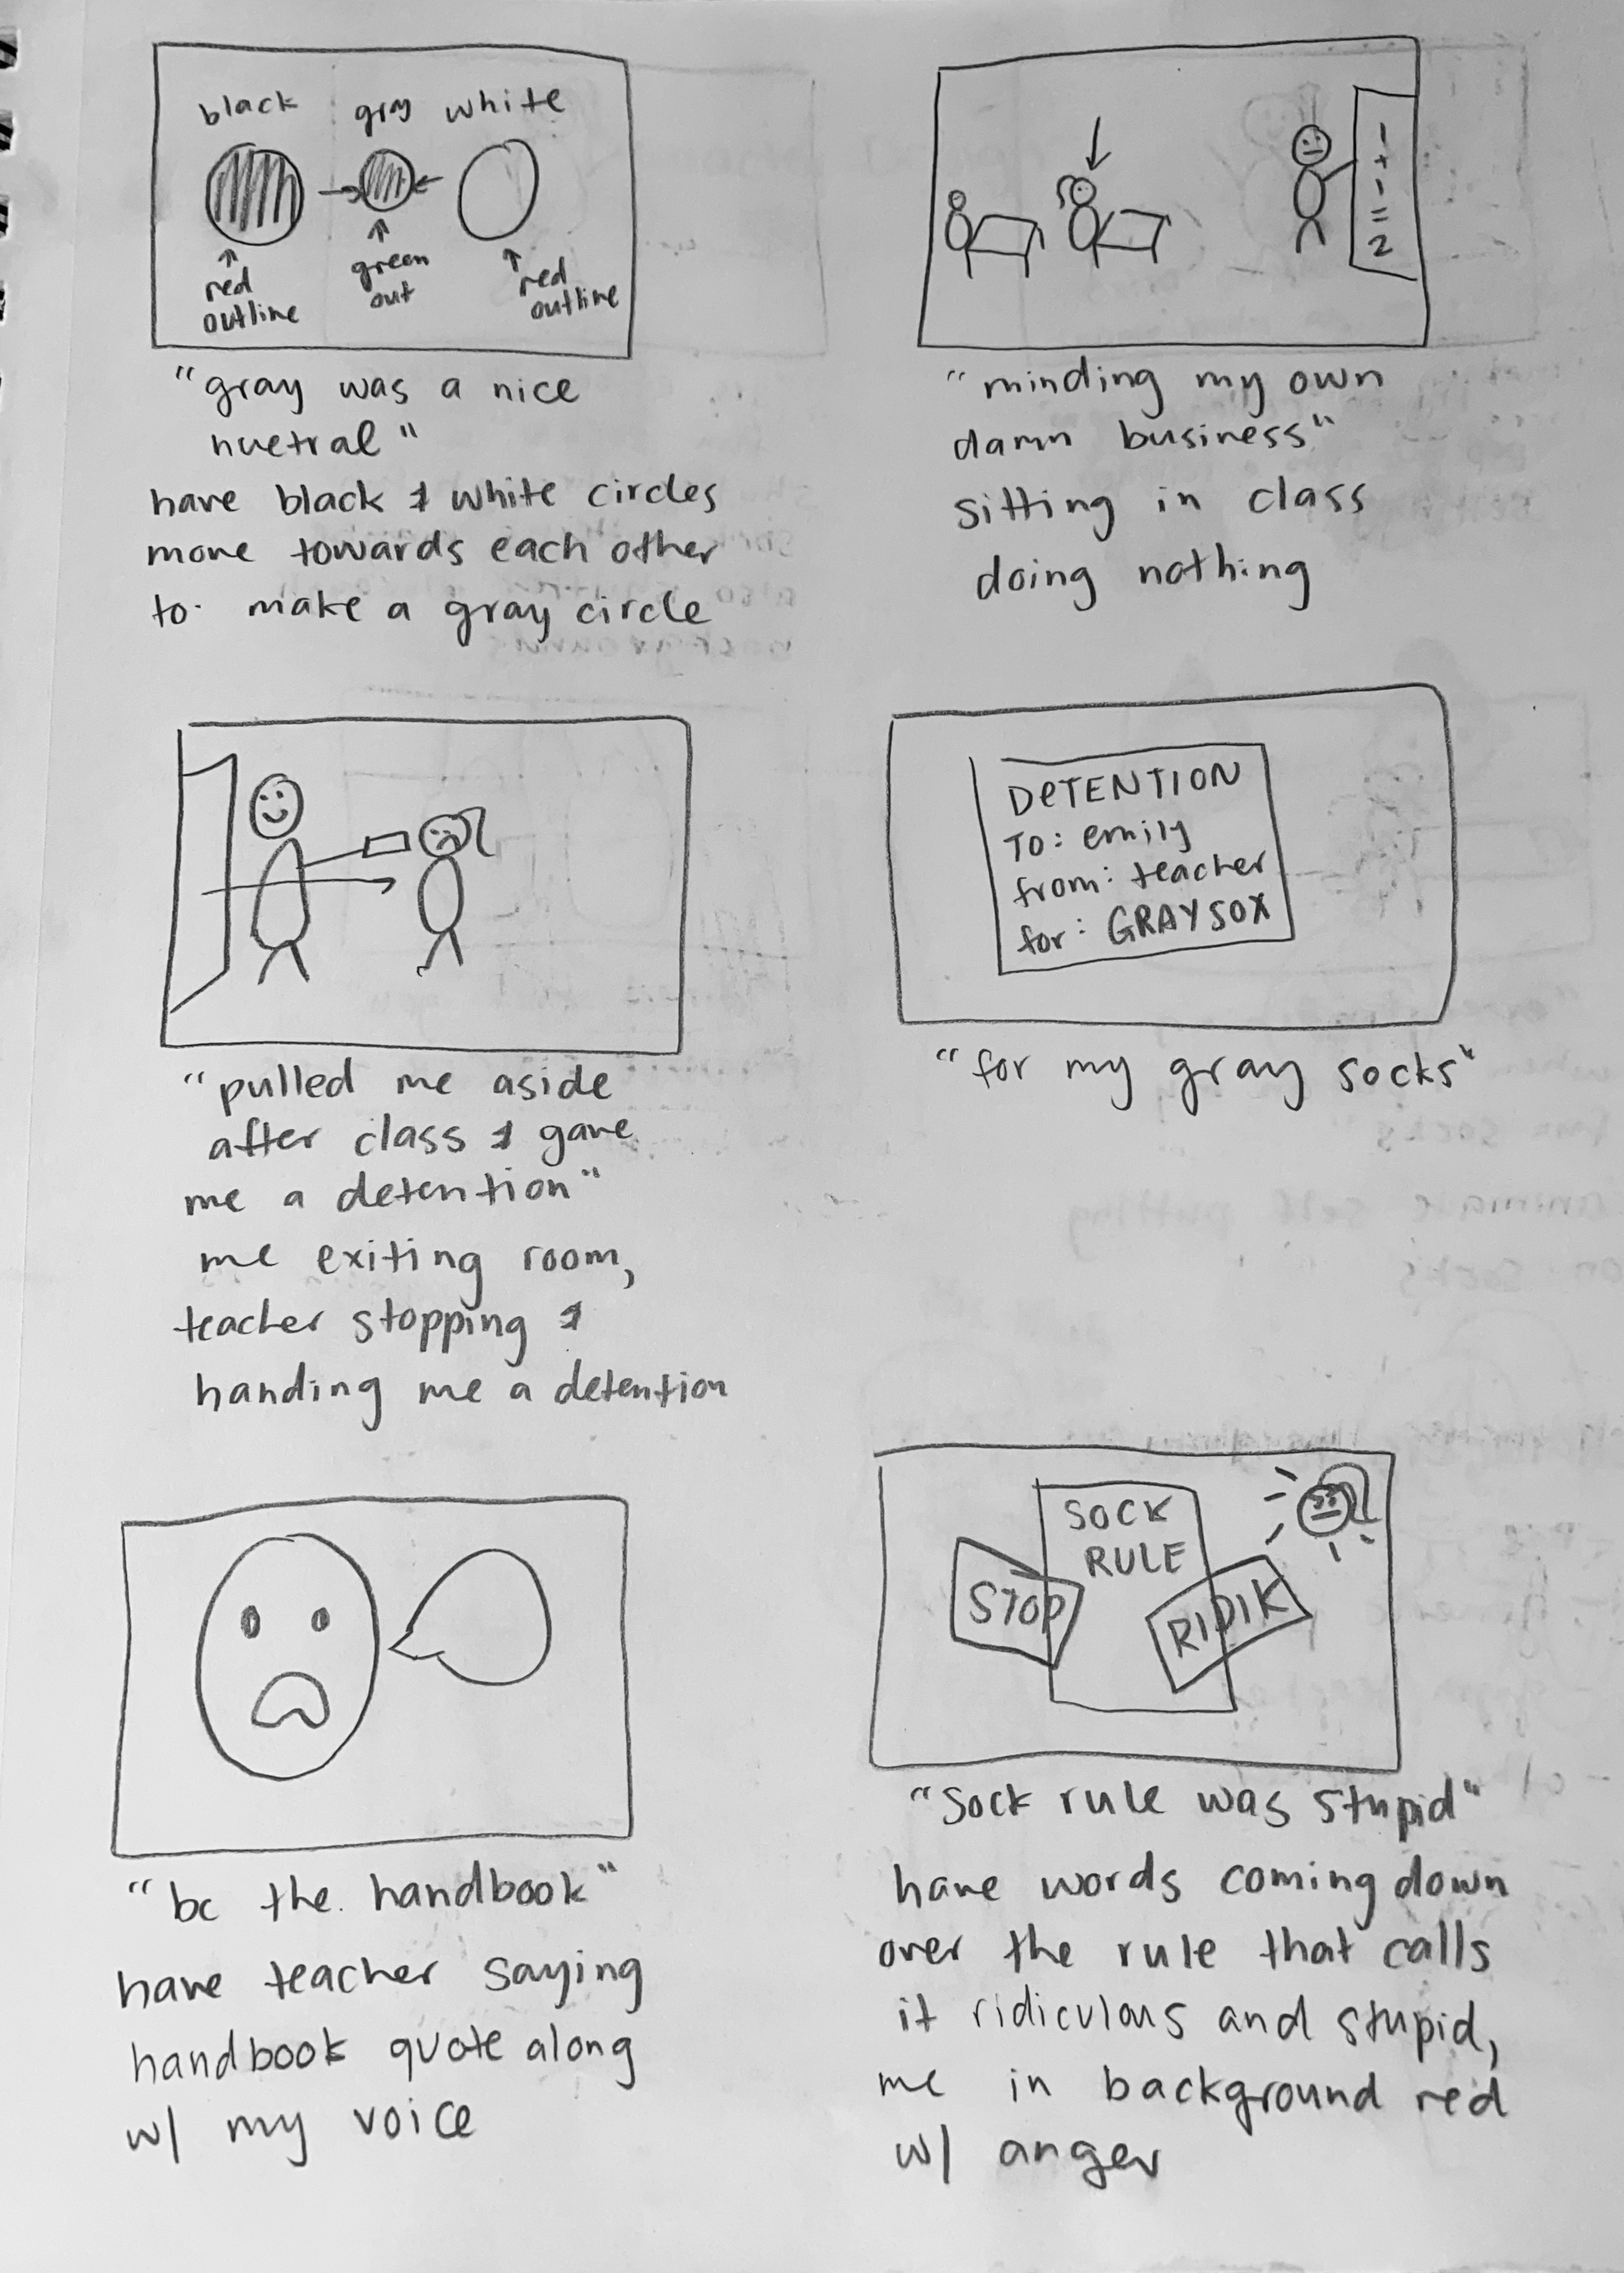 black gray white
red outline
green out
red outline
"gray was a nice
nuetral"
have black & white circles
move towards each other
to make a gray circle
1
+
1
=
2
"minding my own
damn business"
sitting in class
doing nothing
"pulled me aside
after class & gave
me a detention"
me exiting room,
teacher stopping &
handing me a detention
DETENTION
To: emily
from: teacher
for: GRAY SOX
"for my gray socks"
"bc the handbook"
have teacher saying
handbook quote along
w/ my voice
SOCK
RULE
STOP
RIDIK
"Sock rule was stupid"
have words coming down
over the rule that calls
it ridiculous and stupid,
me in background red
w/ anger